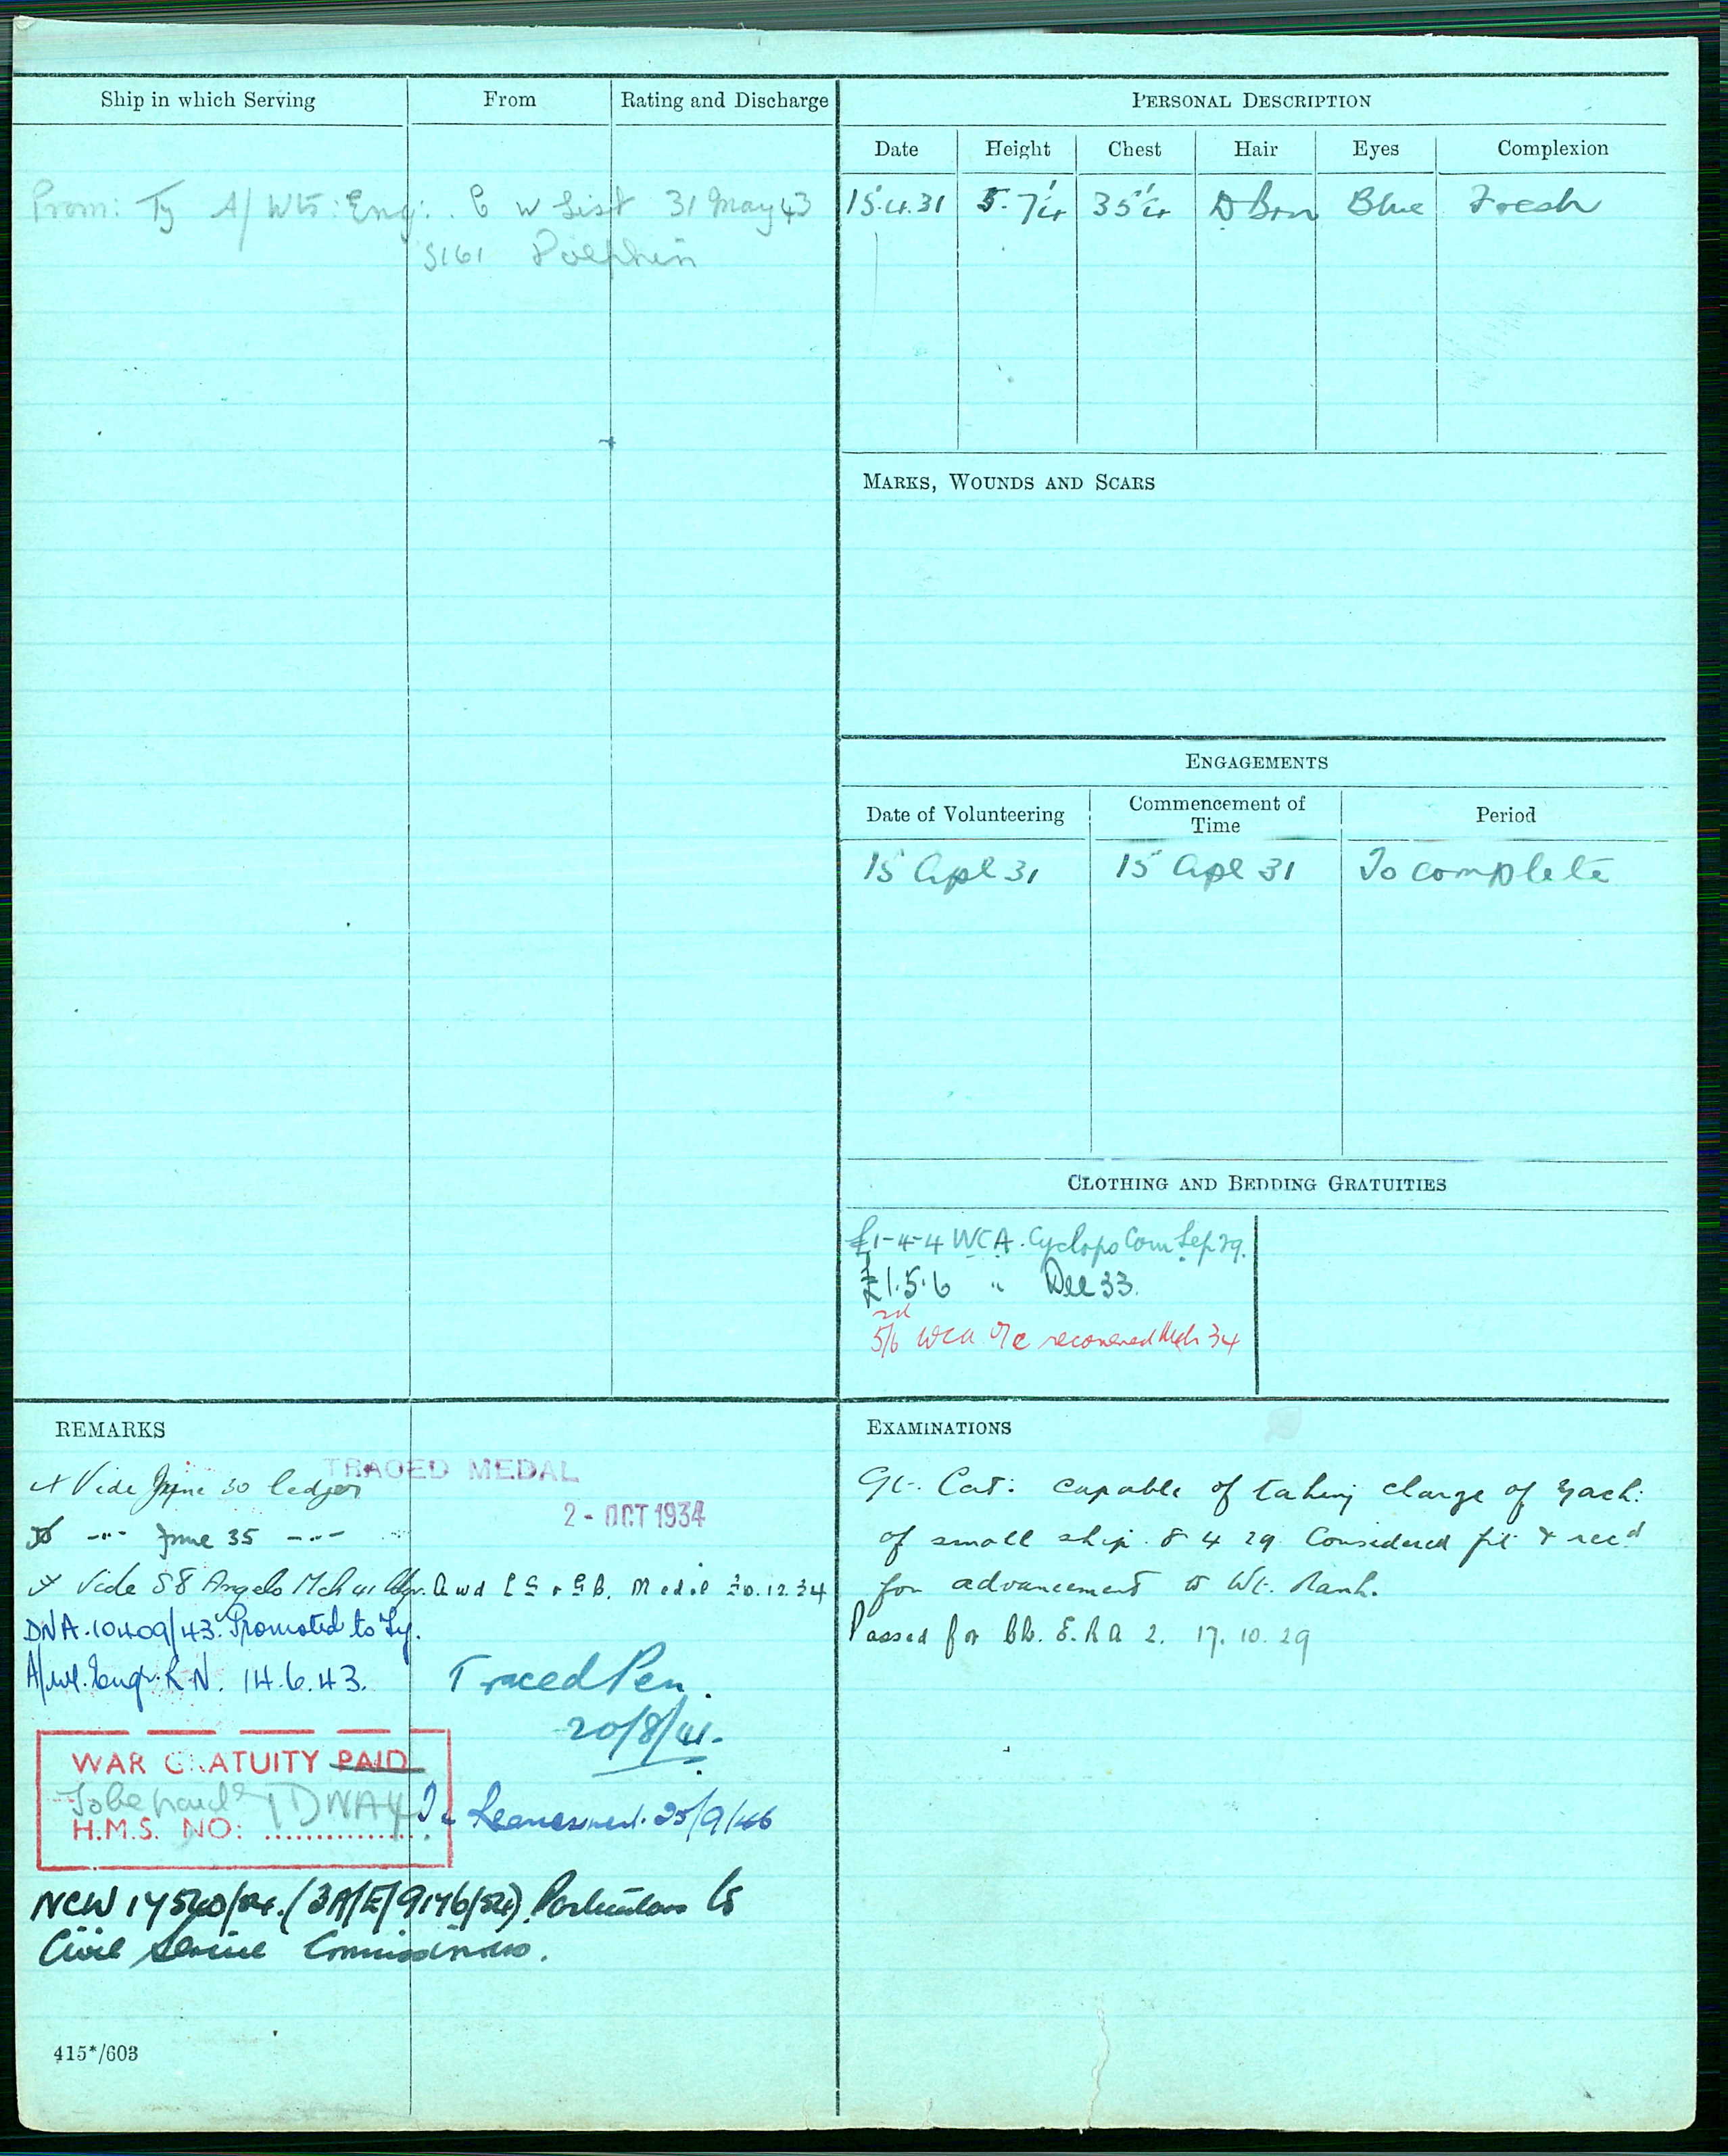 Ship in which Serving From Rating and Discharge
Prom: Ty A/ Wt: Eng: . C W List 31 May 43
5161 Dolphin
PERSONAL DESCRIPTION
Date Height Chest Hair Eyes Complexion
15.4.31 5. 7¼ 35¼ D Brn Blue Fresh
MARKS, WOUNDS AND SCARS
ENGAGEMENTS
Date of Volunteering Commencement of Time Period
15 Apl 31 15 Apl 31 To complete
CLOTHING AND BEDDING GRATUITIES
£1-4-4 WCA. Cyclops Com Sep 29.
£1.5.6 " Dec 33.
5/6 WCA recovered Mch 34
REMARKS
TRACED MEDAL
2 - OCT 1934
x Vide June 30 ledger
-"- June 35 -"-
Vide St Angelo Mch 41 Awd L S & G B. Medal 30.12.34
DNA.10409/43. Promoted to Ty.
A/Wt. Engr. R.N. 14.6.43.
Traced Pen.
20/8/41.
WAR GRATUITY PAID
To be paid DNA4
H.M.S. NO: ................
25/9/46
NCW 17540/54. (3A/E/9176/54). Particulars to
Civil Service Commissioners.
415*/603
EXAMINATIONS
Gt. Cat: capable of taking charge of
of small ship. 8 4 29 Considered fit & recd
for advancement to Wt. Rank.
Passed for Ch. E.R.A 2. 17.10.29